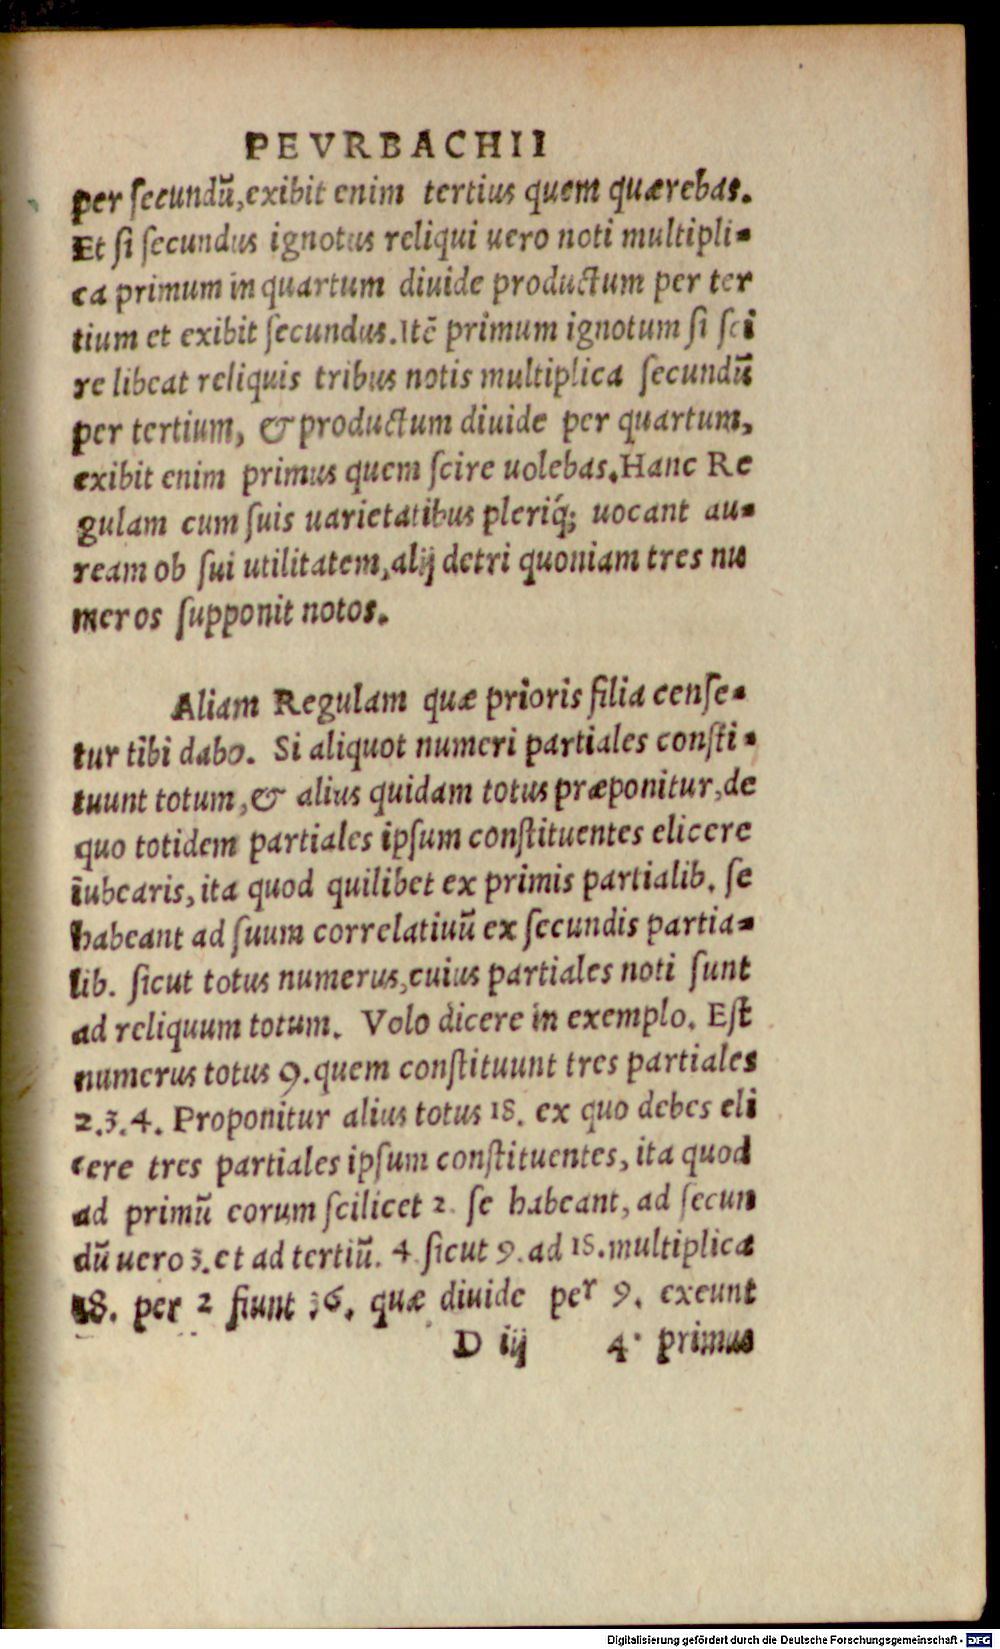 PEVRBACHII
per ſecundũ, exibit enim tertius quem quærebas.
Et ſi ſecundus ignotus reliqui uero noti multipli-
ca primum in quartum diuide productum per ter
tium et exibit ſecundus. Itẽ primum ignotum ſi ſci
re libeat reliquis tribus notis multiplica ſecundũ
per tertium, & productum diuide per quartum,
exibit enim primus quem ſcire uolebas. Hanc Re
gulam cum ſuis uarietatibus pleriq́; uocant au-
ream ob ſui utilitatem, alij detri quoniam tres nu
meros ſupponit notos.
Aliam Regulam quæ prioris filia cenſe-
tur tibi dabo. Si aliquot numeri partiales conſti-
tuunt totum, & alius quidam totus præponitur, de
quo totidem partiales ipſum conſtituentes elicere
iubearis, ita quod quilibet ex primis partialib. ſe
habeant ad ſuum correlatiuũ ex ſecundis partia-
lib. ſicut totus numerus, cuius partiales noti ſunt
ad reliquum totum. Volo dicere in exemplo. Eſt
numerus totus 9. quem conſtituunt tres partiales
2.3.4. Proponitur alius totus 18. ex quo debes eli
cere tres partiales ipſum conſtituentes, ita quod
ad primũ eorum ſcilicet 2. ſe habeant, ad ſecun
dũ uero 3. et ad tertiũ. 4. ſicut 9. ad 18. multiplica
18. per 2 fiunt 36. quæ diuide per 9. exeunt
D iij 4. primus
Digitalisierung gefördert durch die Deutsche Forschungsgemeinschaft - DFG